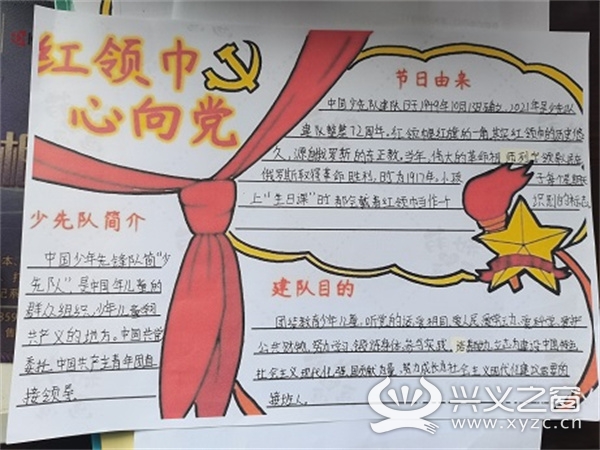 红领巾
心向党
节日由来
中国少先队建队日于1949年10月13日确立，2021年是少先队
建队整整72周年，红领巾是红旗的一角，其实红领巾的历史悠
久，源自俄罗斯的东正教，当年，伟大的革命
俄罗斯取得革命胜利，时为1917年，小孩子每个星期天
上“主日课”时都会戴着红领巾当作一个识别的标志
少先队简介
中国少年先锋队简“少
先队”是中国少年儿童的
群众组织，少年儿童学习
共产主义的地方。中国共产党
委托，中国共产主义青年团直
接领导
建队目的
团结教育少年儿童，听党的话，爱祖国，爱人民，爱劳动，爱科学，爱护
公共财物，努力学习，锻炼身体，参与实践，培养能力，立志为建设中国特色
社会主义现代化强国贡献力量，努力成长为社会主义现代化建设需要的
接班人
兴义之窗
www.xyzc.cn